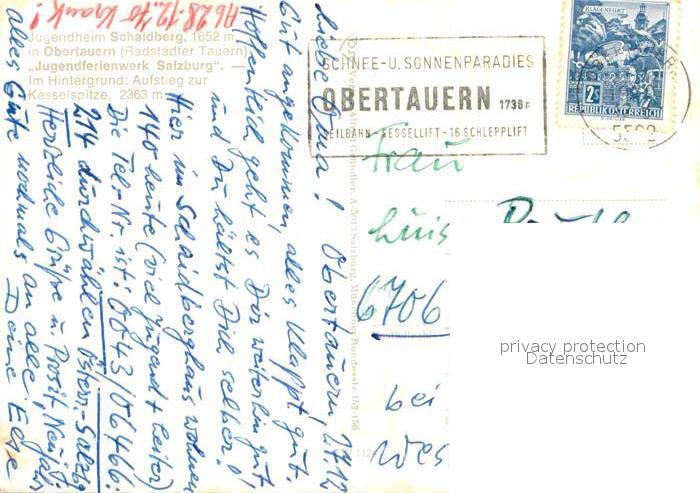 Ab 28.12.70 krank!
Jugendheim Schaidberg, 1652 m
in Obertauern (Radstädter Tauern)
„Jugendferienwerk Salzburg".
Im Hintergrund: Aufstieg zur
Kesselspitze, 2363 m
SCHNEE-U. SONNENPARADIES
OBERTAUERN 1738m
SEILBAHN-SESSELLIFT-16 SCHLEPPLIFT
KLAGENFURT
2S
REPUBLIK ÖSTERREICH
5562
Liebe Oma! Obertauern, 27.12
Gut angekommen, alles klappt gut.
Hoffentlich geht es Dir weiterhin gut
und Du hältst Dich selber!
Hier im Schaidberghaus wohnen
140 heute (viel Jugend + Leiter)
Die Tel-Nr. ist: 0043/06466:
214 durchwählen Österr.-Salzbg
Herzliche Grüße u. Prosit Neujahr
alles Gute nochmals an alle,
Deine
Frau
Luis
6706
bei
Wes
privacy protection
Datenschutz